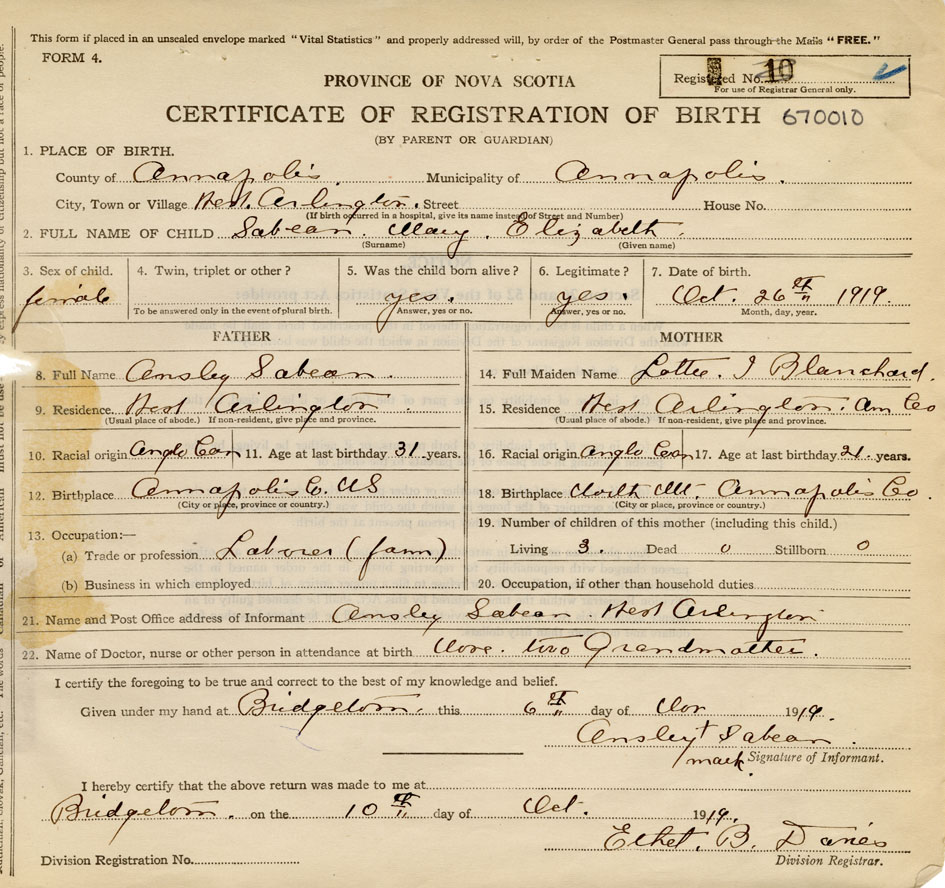 This form if placed in an unsealed envelope marked "Vital Statistics" and properly addressed will, by order of the Postmaster General pass through the Mails "FREE."
FORM 4.
Registered No. 10
For use of Registrar General only.
PROVINCE OF NOVA SCOTIA
CERTIFICATE OF REGISTRATION OF BIRTH 670010
(BY PARENT OR GUARDIAN)
1. PLACE OF BIRTH.
County of Annapolis. Municipality of Annapolis.
City, Town or Village West. Arlington. Street House No.
(If birth occurred in a hospital, give its name instead of Street and Number)
2. FULL NAME OF CHILD Sabean. Mary. Elizabeth.
(Surname) (Given name)
3. Sex of child. 4. Twin, triplet or other? 5. Was the child born alive? 6. Legitimate? 7. Date of birth.
female yes. yes. Oct. 26th 1919.
To be answered only in the event of plural birth. Answer, yes or no. Answer, yes or no. Month, day, year.
FATHER
8. Full Name Ansley Sabean.
9. Residence West Arlington.
(Usual place of abode.) If non-resident, give place and province.
10. Racial origin Anglo Can 11. Age at last birthday 31 years.
12. Birthplace Annapolis Co. NS
(City or place, province or country.)
13. Occupation:—
(a) Trade or profession Laborer (farm)
(b) Business in which employed
MOTHER
14. Full Maiden Name Lottie. I Blanchard.
15. Residence West Arlington. Ann Co
(Usual place of abode.) If non-resident, give place and province.
16. Racial origin Anglo Can 17. Age at last birthday 21 years.
18. Birthplace North Mt. Annapolis Co.
(City or place, province or country.)
19. Number of children of this mother (including this child.)
Living 3. Dead 0 Stillborn 0
20. Occupation, if other than household duties
21. Name and Post Office address of Informant Ansley Sabean. West Arlington
22. Name of Doctor, nurse or other person in attendance at birth None. two Grandmother.
I certify the foregoing to be true and correct to the best of my knowledge and belief.
Given under my hand at Bridgetown. this 6th day of Nov 1919.
Ansley + Sabean.
mark Signature of Informant.
I hereby certify that the above return was made to me at
Bridgetown. on the 10th day of Oct. 1919.
Ethel. B. Davies
Division Registration No. Division Registrar.